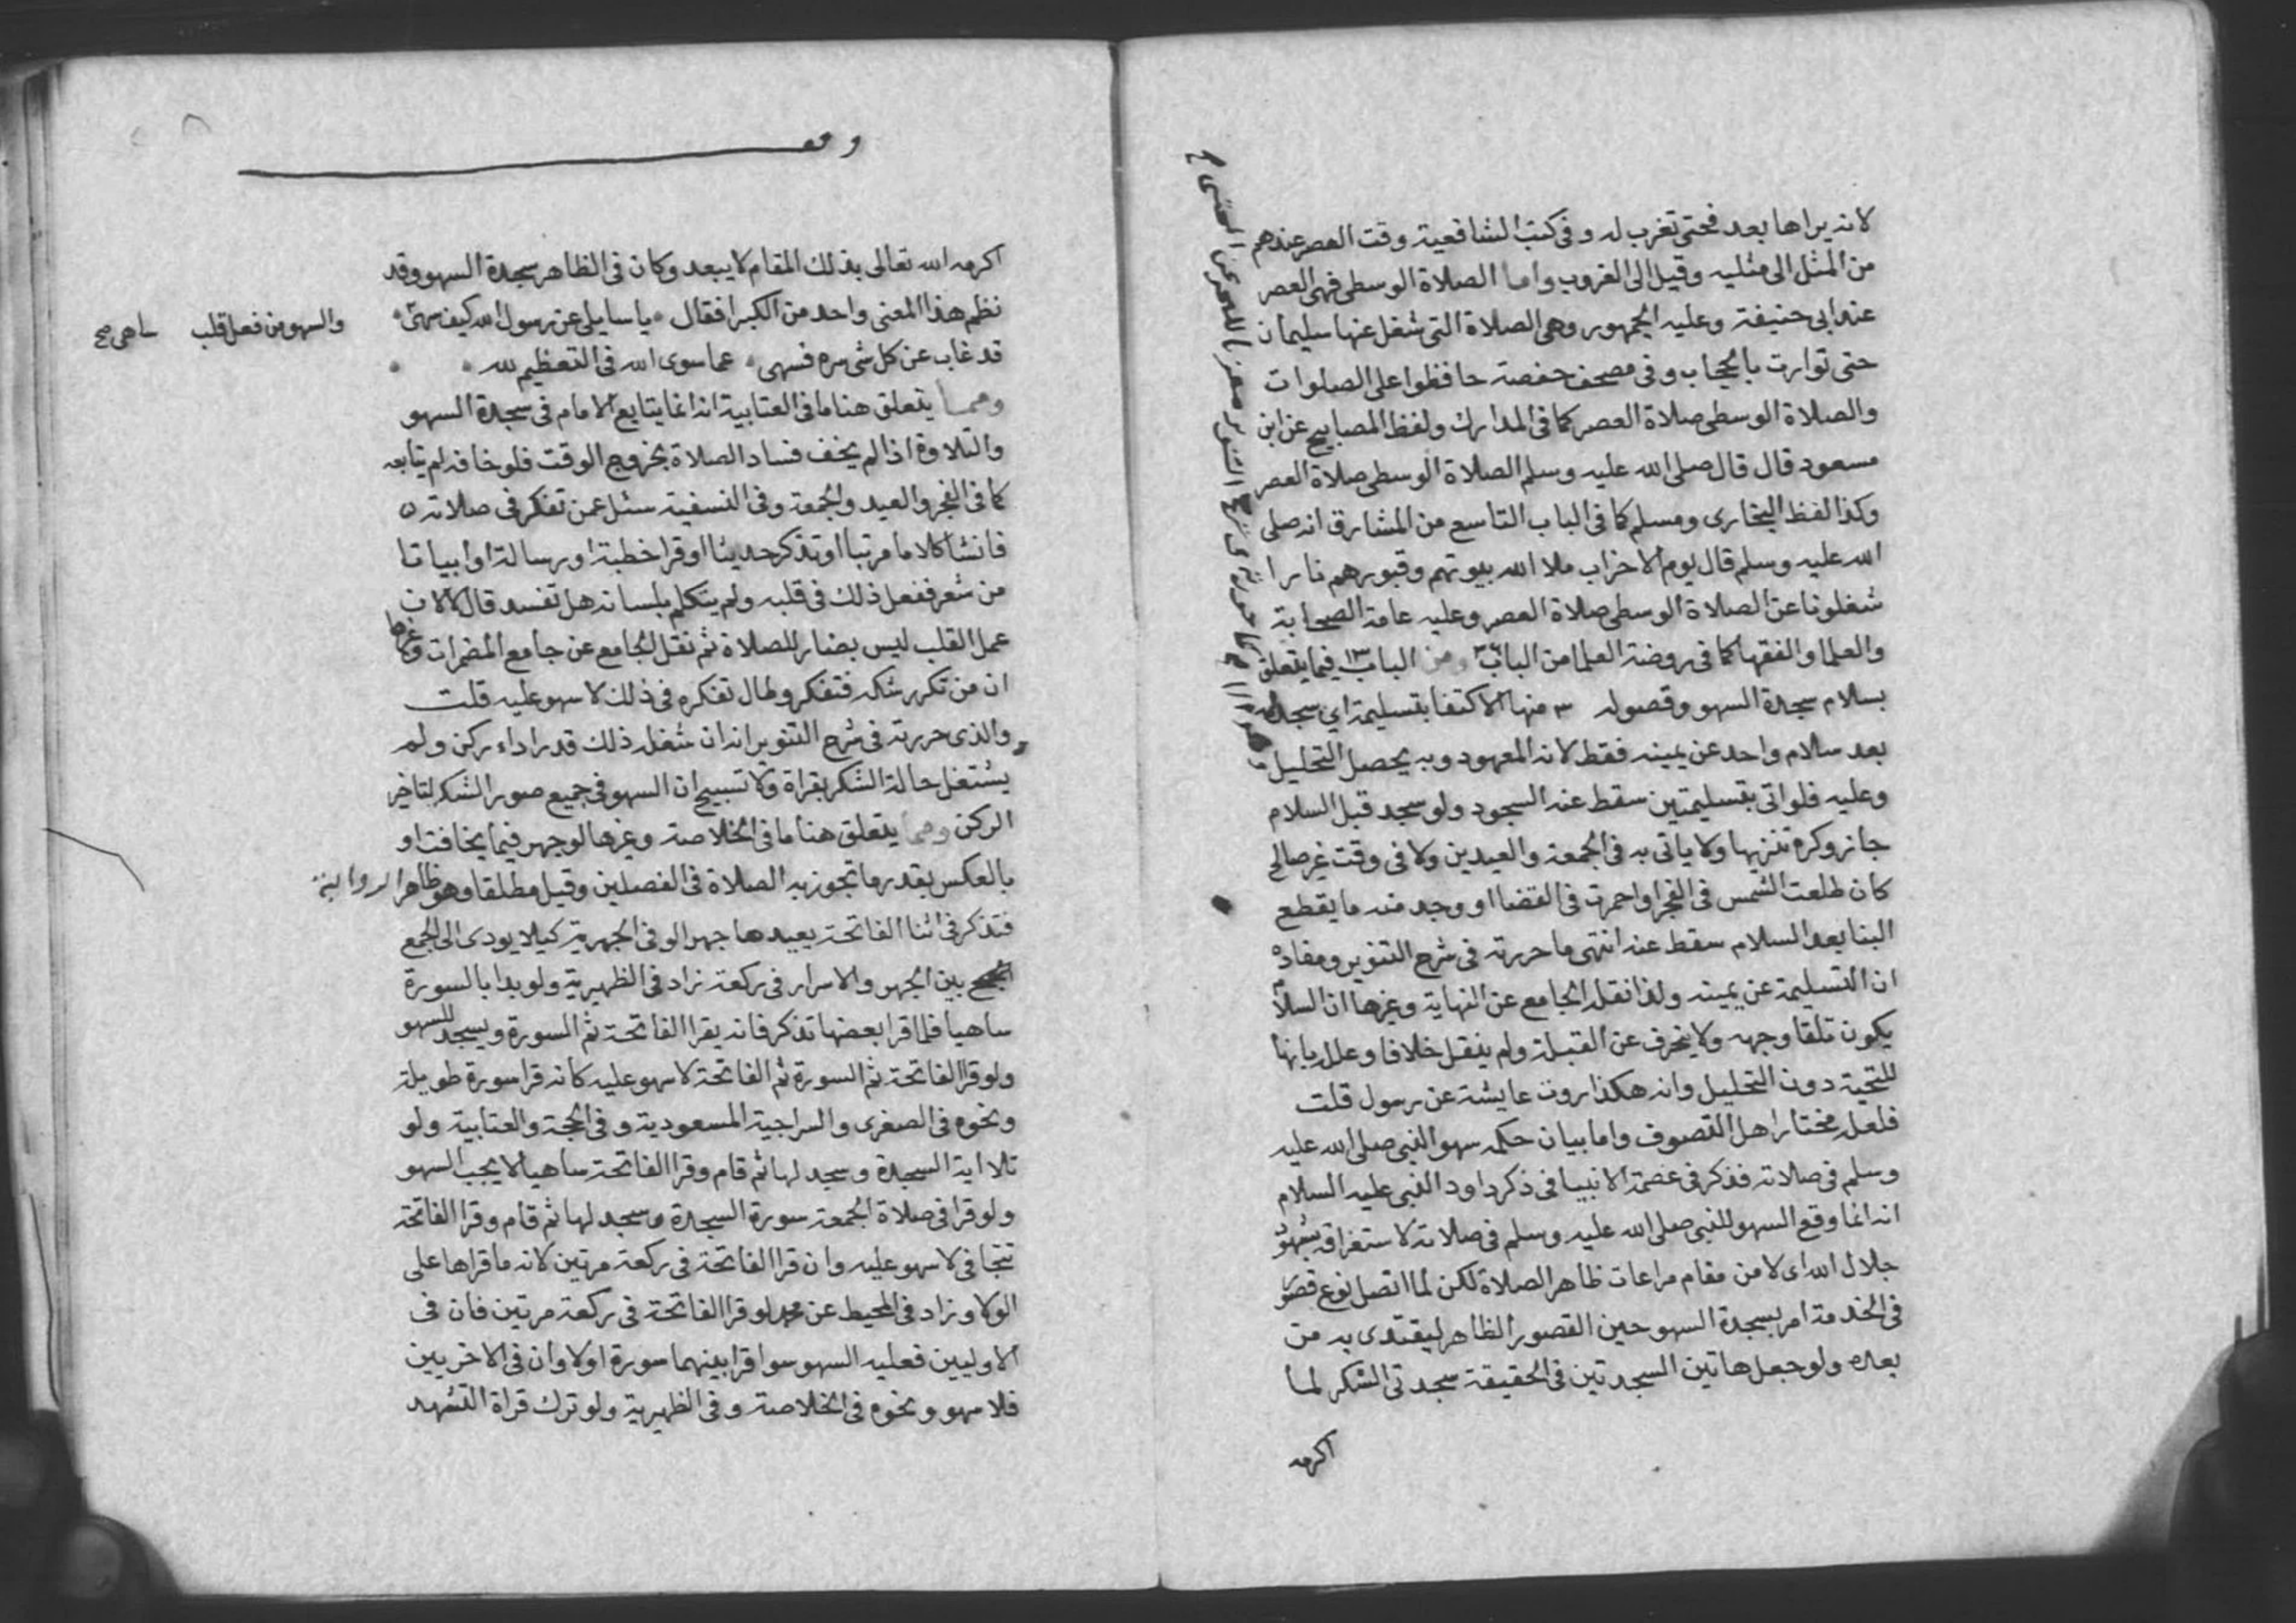 لانه يراها بعد فحتى تغرب له وفى كتب الشافعية وقت العصر عندهم
من المثل الى مثليه وقيل الى الغروب واما الصلاة الوسطى فهى العصر
عند ابى حنيفة وعليه الجمهور وهى الصلاة التى شغل عنها سليمان
حتى توارت بالحجاب وفى مصحف حفصة حافظوا على الصلوات
والصلاة الوسطى صلاة العصر كما فى المدارك ولفظ المصابيح عن ابن
مسعود قال قال صلى الله عليه وسلم الصلاة الوسطى صلاة العصر
وكذا لفظ البخارى ومسلم كما فى الباب التاسع من المشارق انه صلى
الله عليه وسلم قال يوم الاحزاب ملا الله بيوتهم وقبورهم نارا
شغلونا عن الصلاة الوسطى صلاة العصر وعليه عامة الصحابة
والعلما والفقها كما فى روضة العلما من الباب ومن الباب ١٣ فيما يتعلق
بسلام سجدة السهو وقصوله ٣ منها الاكتفا بتسليمة اي سجدله
بعد سلام واحد عن يمينه فقط لانه المعهود وبه يحصل التحليل
وعليه فلو اتى بتسليمتين سقط عنه السجود ولو سجد قبل السلام
جاز وكره تنزيها ولا ياتى به فى الجمعة والعيدين ولا فى وقت غير صالح
كان طلعت الشمس فى الفجر او احمرت فى القضا او وجد منه ما يقطع
البنا بعد السلام سقط عنه انتهى ما حررته فى شرح التنوير ومفاده
ان التسليمة عن يمينه ولذا نقل الجامع عن النهاية وغيرها ان السلام
يكون تلقا وجهه ولا ينحرف عن القبلة ولم ينقل خلافا وعلل بانها
للتحية دون التحليل وانه هكذا روت عايشة عن رسول قلت
فلعل مختار اهل التصوف واما بيان حكمه سهو النبى صلى الله عليه
وسلم فى صلاته فذكر فى عصمة الانبيا فى ذكر داود النبى عليه السلام
انه انما وقع السهو للنبى صلى الله عليه وسلم فى صلاته لاستغراقه بشهود
جلال الله اى لا من مقام مراعات ظاهر الصلاة لكن لما اتصل نوع قصور
فى الخدمة امر بسجدة السهو حين القصور الظاهر ليقتدى به من
بعده ولو جعل هاتين السجدتين فى الحقيقة سجدتى الشكر لما
اكرمه
وقف
اكرمه الله تعالى بذلك المقام لا يبعد وكان فى الظاهر سجدة السهو وقد
نظم هذا المعنى واحد من الكبرا فقال يا سايلى عن رسول الله كيف سهى
والسهو من فعل قلب ساهى صح
قد غاب عن كل شى سره فسهى عما سوى الله فى التعظيم لله
ومما يتعلق هنا ما فى العتابية انه انما يتابع الامام فى سجدة السهو
والتلاوة اذا لم يخف فساد الصلاة بخروج الوقت فلو خافه لم يتابعه
كما فى الفجر والعيد والجمعة وفى النسفية سئل عمن تفكر فى صلاته
فانشا كلاما مرتبا او تذكر حديثا او قرا خطبة او رسالة او ابياتا
من شعر ففعل ذلك فى قلبه ولم يتكلم بلسانه هل تفسد قال لا لان
عمل القلب ليس بضار للصلاة ثم نقل الجامع عن جامع المضمرات وغيرها
ان من تكرر شكه فتفكر وطال تفكره فى ذلك لا سهو عليه قلت
والذى حررته فى شرح التنوير انه ان شغله ذلك قدر اداء ركن ولم
يشتغل حالة الشك بقراة ولا تسبيح ان السهو فى جميع صور الشك لتاخير
الركن ومما يتعلق هنا ما فى الخلاصة وغيرها لو جهر فيما يخافت او
بالعكس بقدر ما تجوز به الصلاة فى الفصلين وقيل مطلقا وهو ظاهر الرواية
فتذكر فى اثنا الفاتحة يعيدها جهرا لو فى الجهرية كيلا يودى الى الجمع
بين الجهر والاسرار فى ركعة زاد فى الظهيرية ولو بدا بالسورة
ساهيا فلما قرا بعضها تذكر فانه يقرا الفاتحة ثم السورة ويسجد للسهو
ولو قرا الفاتحة ثم السورة ثم الفاتحة لا سهو عليه كانه قرا سورة طويلة
ونحوه فى الصغرى والسراجية المسعودية وفى الحجة والعتابية ولو
تلا اية السجدة وسجد لها ثم قام وقرا الفاتحة ساهيا لا يجب السهو
ولو قرا فى صلاة الجمعة سورة السجدة وسجد لها ثم قام وقرا الفاتحة
تتجافى لا سهو عليه وان قرا الفاتحة فى ركعة مرتين لانه ما قراها على
الولا وزاد فى المحيط عن محمد لو قرا الفاتحة فى ركعة مرتين فان فى
الاوليين فعليه السهو سوا قرا بينهما سورة اولا وان فى الاخريين
فلا سهو ونحوه فى الخلاصة وفى الظهيرية ولو ترك قراة التشهد